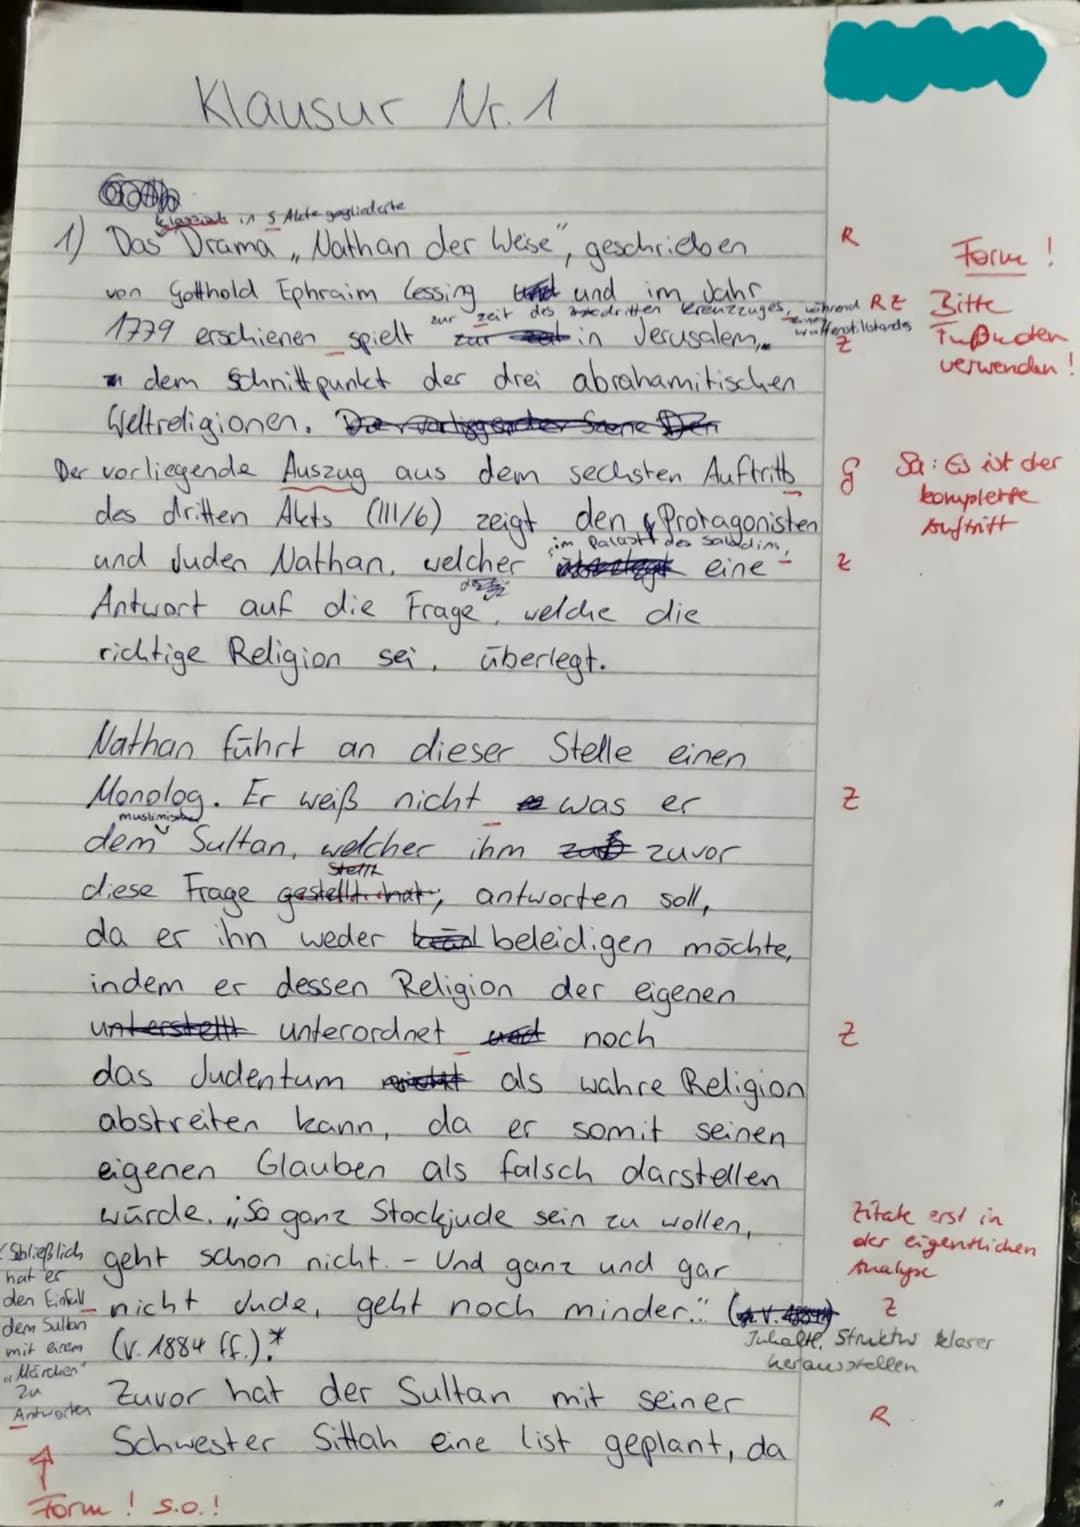 Klausur Nr. 1
klassisch in 5 Akte gegliederte
1) Das Drama „Nathan der Weise", geschrieben
R
Form !
von Gotthold Ephraim Lessing und im Jahr
zur zeit des dritten Kreuzzuges, während
eines
Waffenstillstands
R Z
Bitte
Fußnoten
verwenden !
1779 erschienen spielt in Jerusalem,
Z
dem Schnittpunkt der drei abrahamitischen
Weltreligionen.
Der vorliegende Auszug aus dem sechsten Auftritt
g
Sa: Es ist der
komplette
Auftritt
des dritten Akts (III/6) zeigt den Protagonisten
im Palast des Saladins,
und Juden Nathan, welcher eine
Z
Antwort auf die Frage, welche die
richtige Religion sei, überlegt.
Nathan führt an dieser Stelle einen
Monolog. Er weiß nicht was er
Z
muslimischen
dem Sultan, welcher ihm zuvor
stellt
diese Frage gestellt hat, antworten soll,
da er ihn weder beleidigen möchte,
indem er dessen Religion der eigenen
unterstellt unterordnet und noch
Z
das Judentum nicht als wahre Religion
abstreiten kann, da er somit seinen
eigenen Glauben als falsch darstellen
würde. „So ganz Stockjude sein zu wollen,
Zitate erst in
der eigentlichen
Analyse
geht schon nicht. - Und ganz und gar
nicht Jude, geht noch minder."
Z
(V. 1884 ff.).*
Inhalte, Struktur klarer
herausstellen
Schließlich
hat er
den Einfall
dem Sultan
mit einem
„Märchen"
zu
Antworten
Form ! s.o. !
Zuvor hat der Sultan mit seiner
R
Schwester Sittah eine list geplant, da